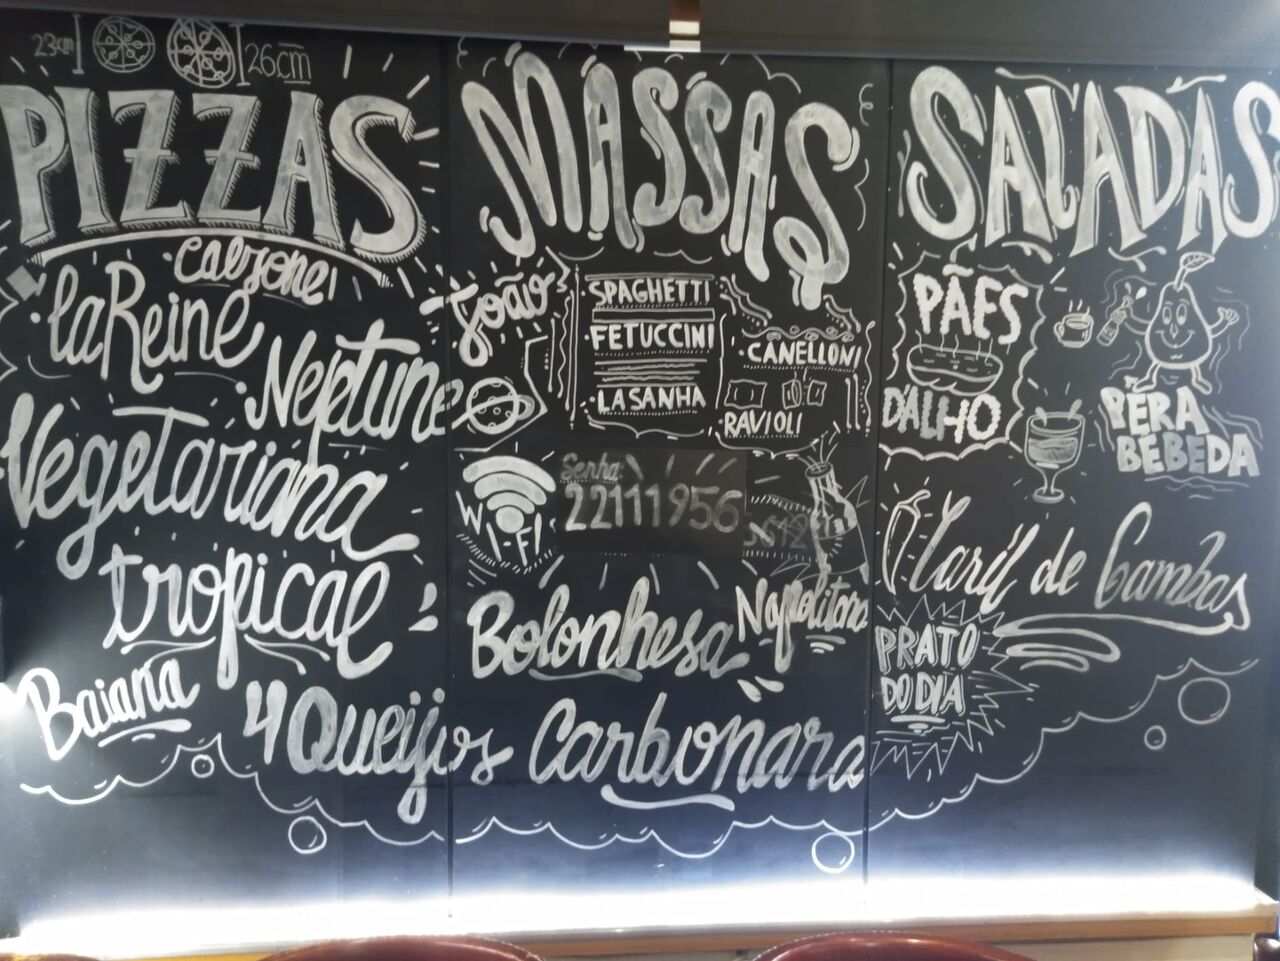 23cm
26cm
PIZZAS
calzone
la Reine
Neptune
Vegetariana
tropical
Baiana
4 Queijos
MASSAS
João
SPAGHETTI
FETUCCINI
LASANHA
CANELLONI
RAVIOLI
WI-FI
Senha:
22111956
Bolonhesa
Napolitana
Carbonara
SALADAS
PÃES
D'ALHO
PÊRA
BÊBEDA
Caril de Gambas
PRATO
DO DIA